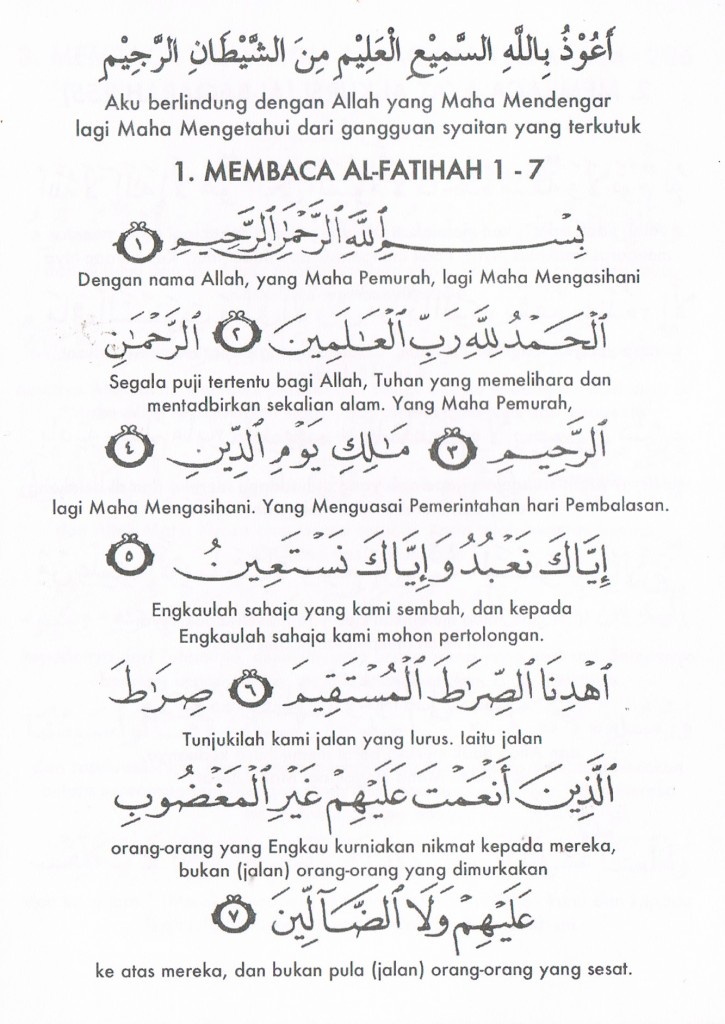 أَعُوْذُ بِاللَّهِ السَّمِيْعِ الْعَلِيْمِ مِنَ الشَّيْطَانِ الرَّجِيْمِ
Aku berlindung dengan Allah yang Maha Mendengar
lagi Maha Mengetahui dari gangguan syaitan yang terkutuk
1. MEMBACA AL-FATIHAH 1 - 7
بِسْمِ ٱللَّهِ ٱلرَّحْمَٰنِ ٱلرَّحِيمِ ١
Dengan nama Allah, yang Maha Pemurah, lagi Maha Mengasihani
ٱلْحَمْدُ لِلَّهِ رَبِّ ٱلْعَٰلَمِينَ ٢ ٱلرَّحْمَٰنِ
Segala puji tertentu bagi Allah, Tuhan yang memelihara dan
mentadbirkan sekalian alam. Yang Maha Pemurah,
ٱلرَّحِيمِ ٣ مَٰلِكِ يَوْمِ ٱلدِّينِ ٤
lagi Maha Mengasihani. Yang Menguasai Pemerintahan hari Pembalasan.
إِيَّاكَ نَعْبُدُ وَإِيَّاكَ نَسْتَعِينُ ٥
Engkaulah sahaja yang kami sembah, dan kepada
Engkaulah sahaja kami mohon pertolongan.
ٱهْدِنَا ٱلصِّرَٰطَ ٱلْمُسْتَقِيمَ ٦ صِرَٰطَ
Tunjukilah kami jalan yang lurus. Iaitu jalan
ٱلَّذِينَ أَنْعَمْتَ عَلَيْهِمْ غَيْرِ ٱلْمَغْضُوبِ
orang-orang yang Engkau kurniakan nikmat kepada mereka,
bukan (jalan) orang-orang yang dimurkakan
عَلَيْهِمْ وَلَا ٱلضَّآلِّينَ ٧
ke atas mereka, dan bukan pula (jalan) orang-orang yang sesat.